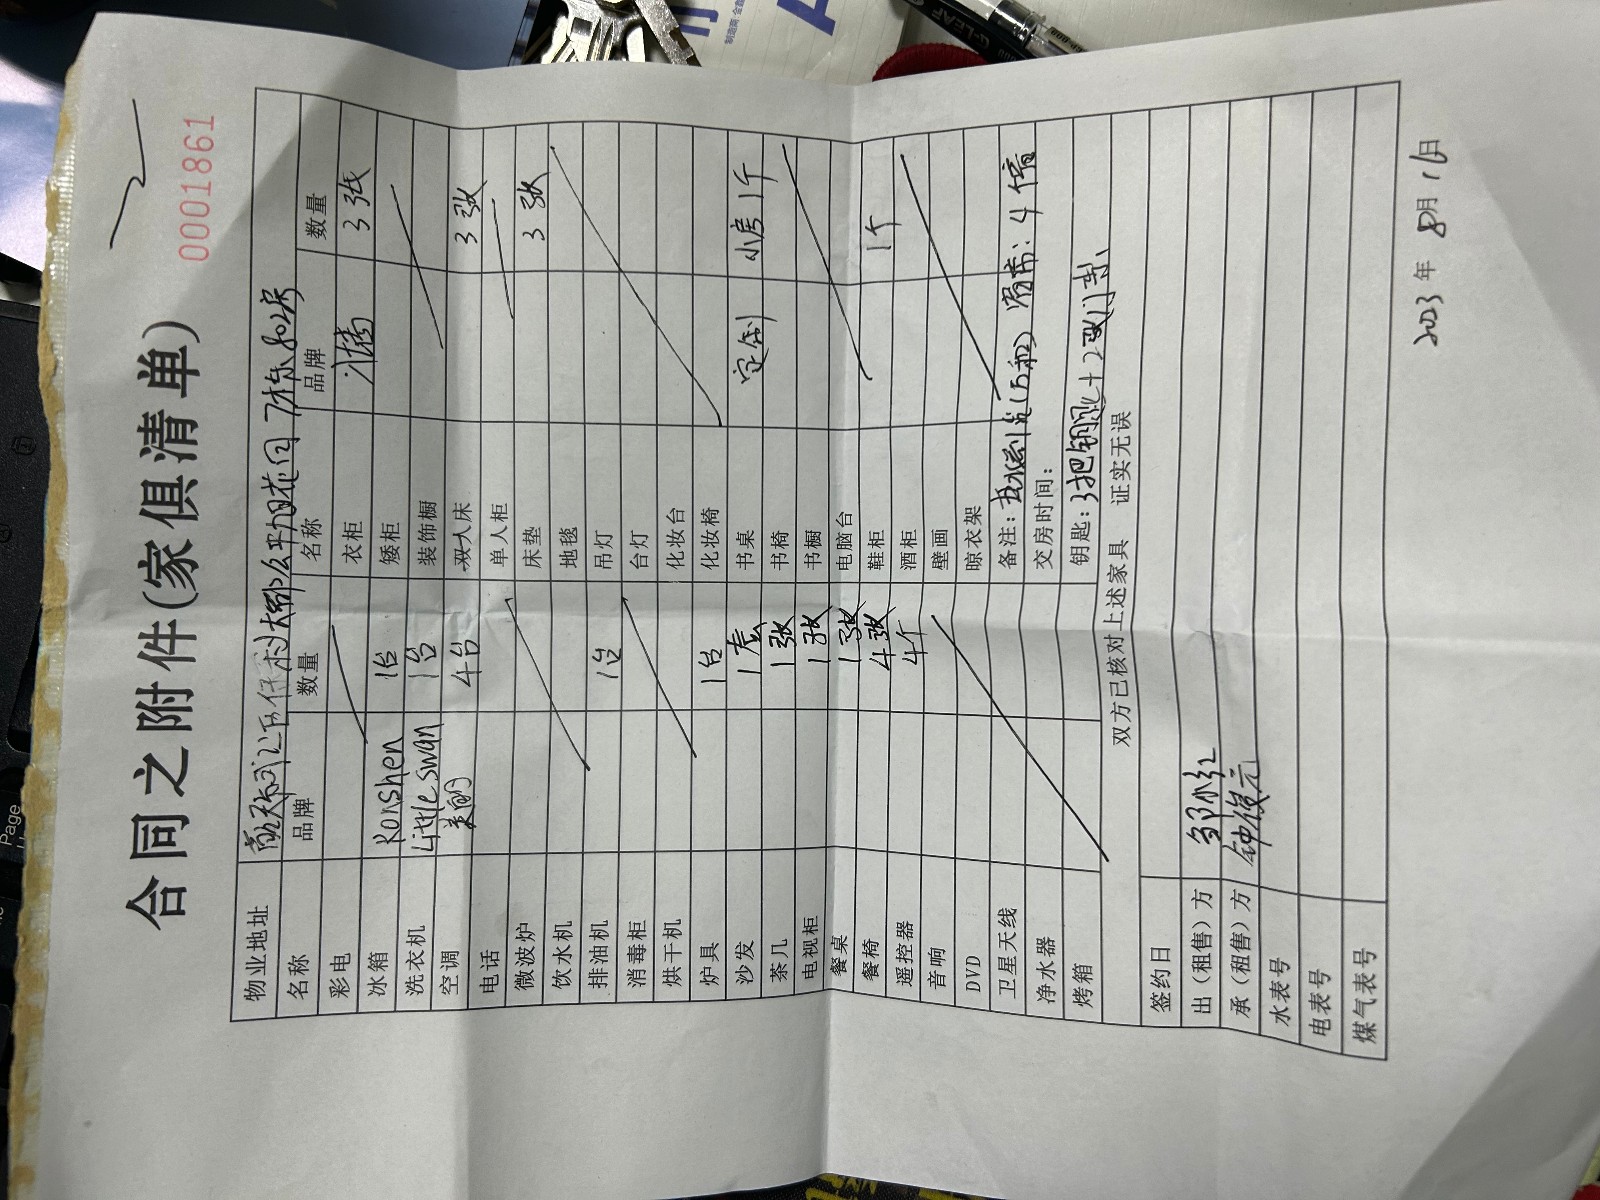 合同之附件(家俱清单)
0001861
物业地址 7栋802房
名称 品牌 数量 名称 品牌 数量
彩电 衣柜 3张
冰箱 Ronshen 1台 矮柜
洗衣机 Little swan 1台 装饰橱
空调 美的 4台 双人床 3张
电话 单人柜
微波炉 床垫 3张
饮水机 地毯
排油机 1台 吊灯
消毒柜 台灯
烘干机 化妆台
炉具 1台 化妆椅
沙发 1套 书桌 定制 小房1个
茶几 1张 书椅
电视柜 1张 书橱
餐桌 1张 电脑台
餐椅 4张 鞋柜 1个
遥控器 4个 酒柜
音响 壁画
DVD 晾衣架
卫星天线 备注: 窗帘: 4
净水器 交房时间:
烤箱 钥匙: 3把钥匙+2张门禁
双方已核对上述家具 证实无误
签约日
出(租售)方 邹小红
承(租售)方 钟俊元
水表号
电表号
煤气表号
2023年 8月16日